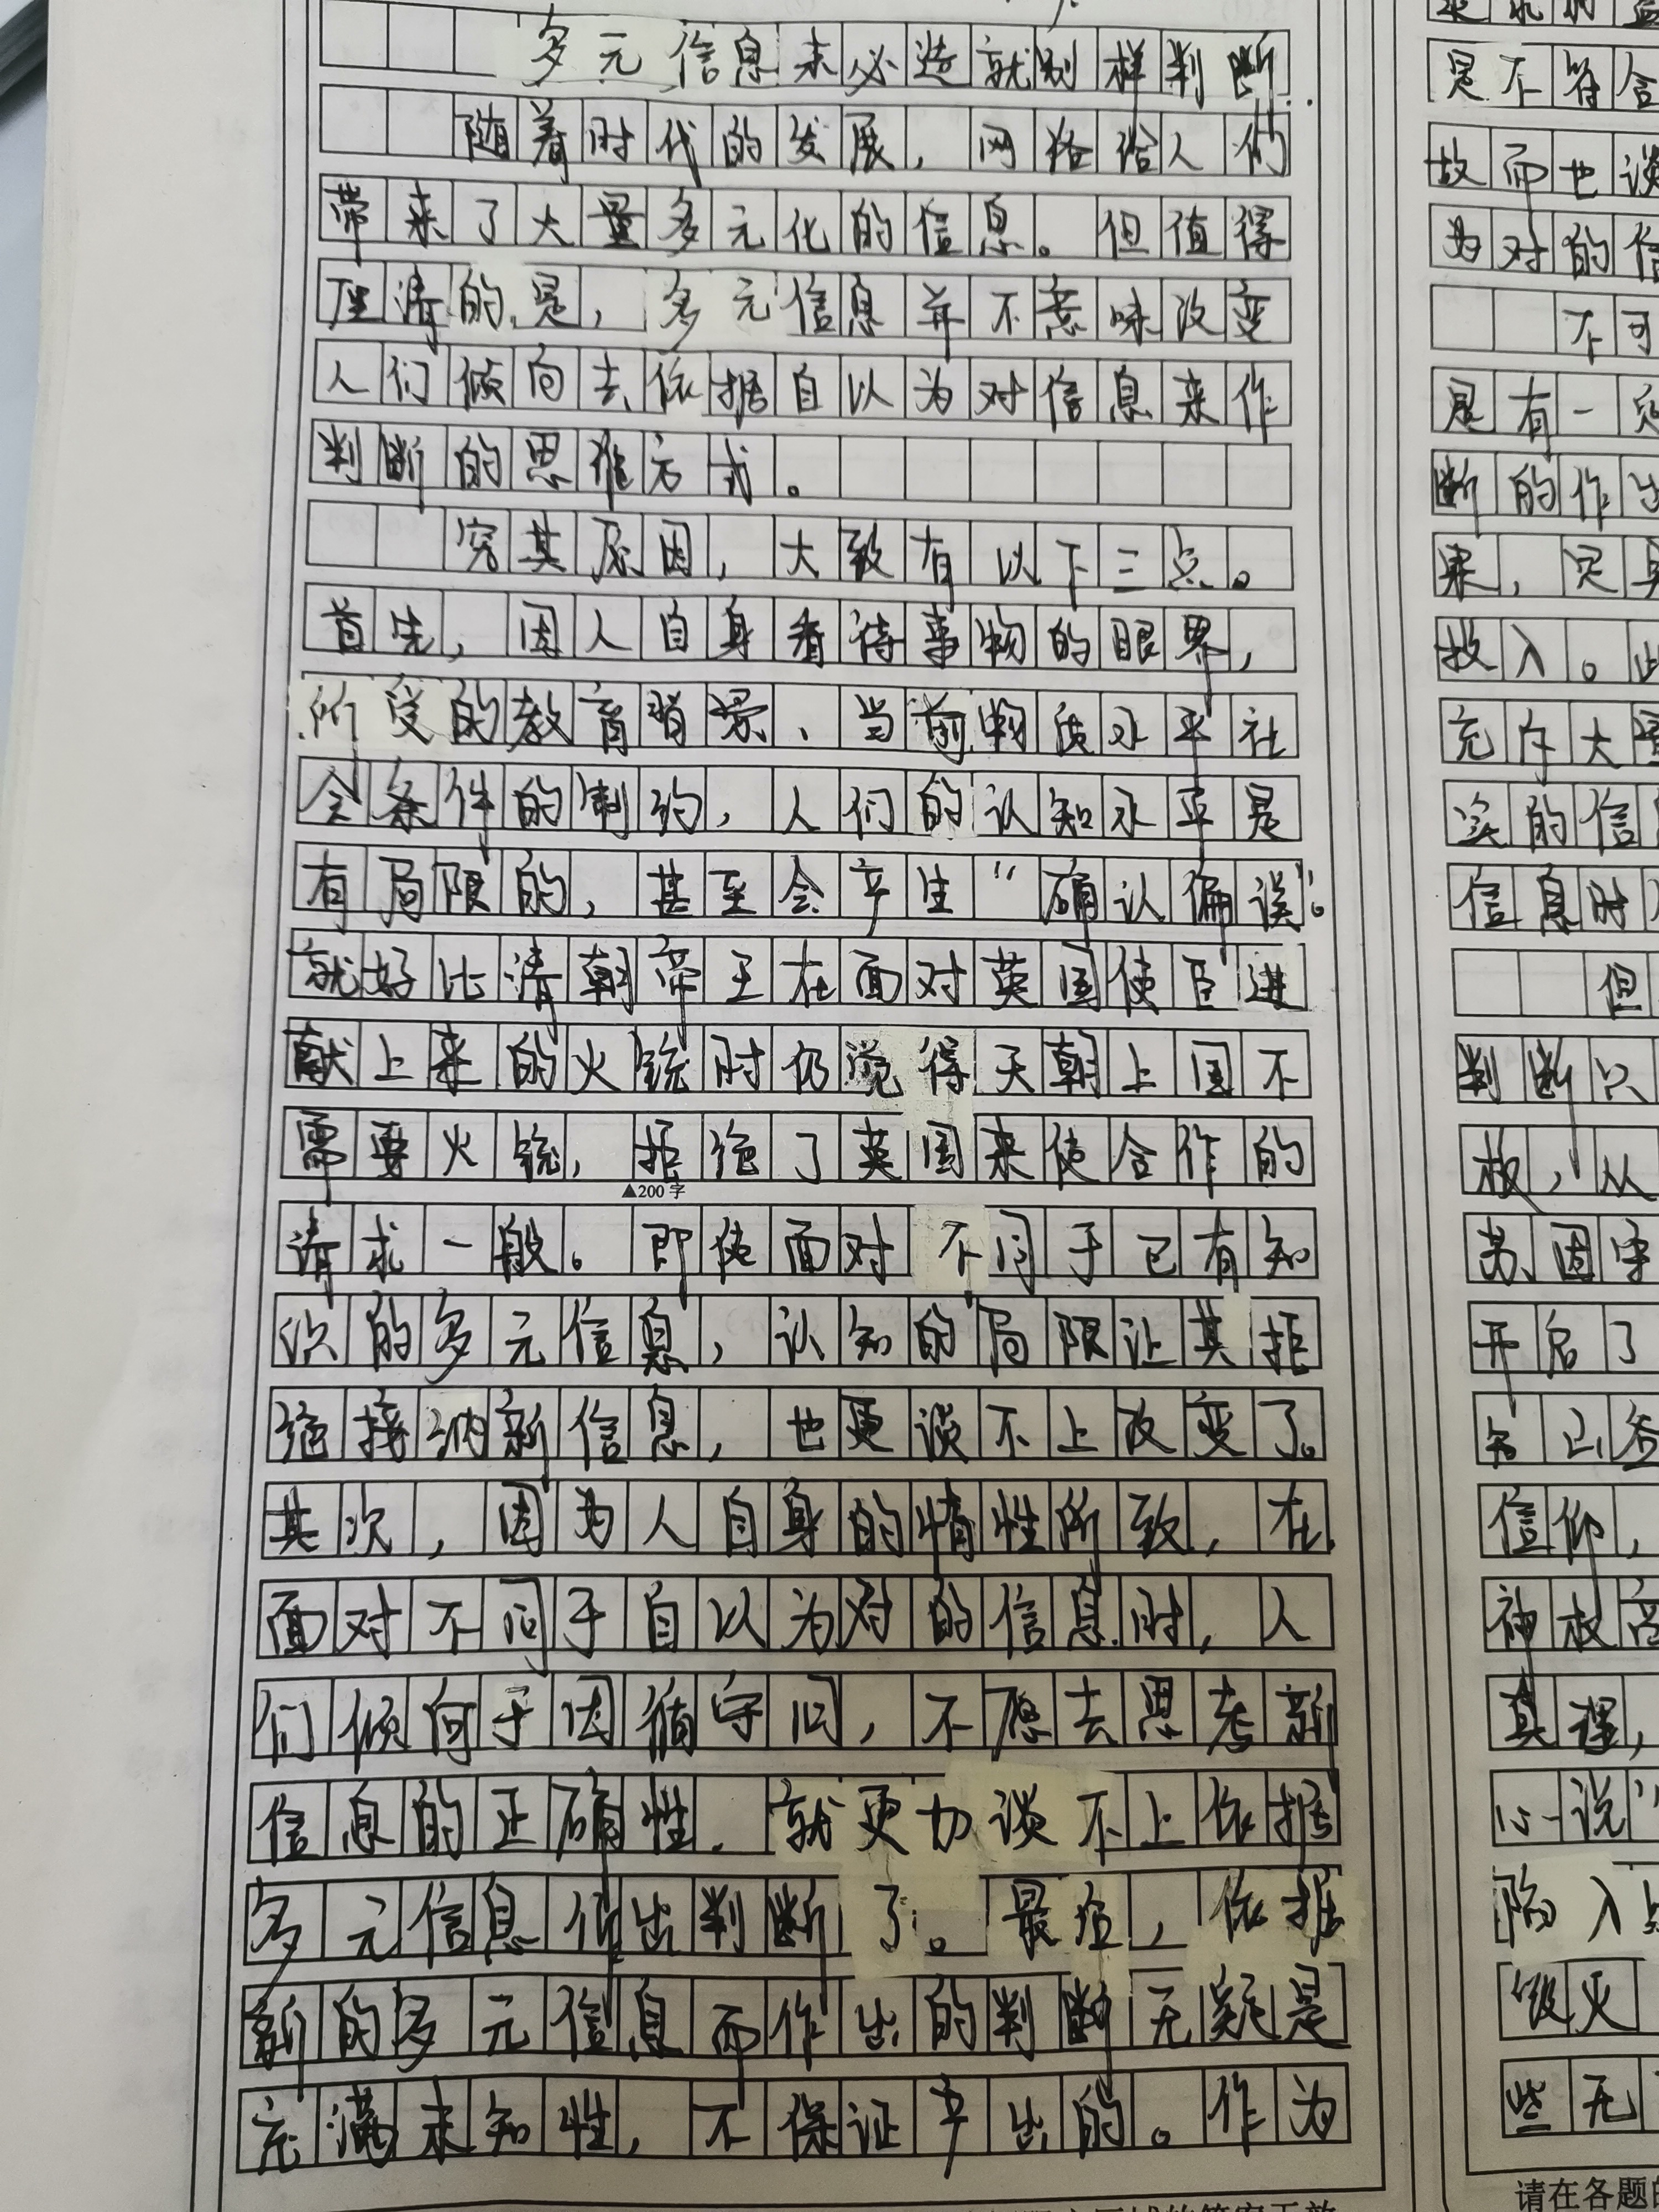 多元信息未必造就别样判断
随着时代的发展，网络给人们
带来了大量多元化的信息。但值得
厘清的是，多元信息并不意味改变
人们倾向去依据自以为对信息来作
判断的思维方式。
究其原因，大致有以下三点。
首先，因人自身看待事物的眼界，
所受的教育背景、当前物质水平社
会条件的制约，人们的认知水平是
有局限的，甚至会产生“确认偏误”。
就好比清朝帝王在面对英国使臣进
献上来的火铳时仍觉得天朝上国不
需要火铳，拒绝了英国来使合作的
▲200字
请求一般。即使面对不同于已有知
识的多元信息，认知的局限让其拒
绝接纳新信息，也更谈不上改变了。
其次，因为人自身的惰性所致，在
面对不同于自以为对的信息时，人
们倾向于因循守旧，不愿去思考新
信息的正确性，就更加谈不上依据
多元信息作出判断了。最后，依据
新的多元信息而作出的判断无疑是
充满未知性，不保证产出的。作为
是不符合
故而也谈
为对的信
不可
是有一定
断的作出
果，定具
投入。此
充斥大量
实的信息
信息时人
但
判断只
板，从
苏因牢
开启了
知己各
信仰，
神权高
真理，
心说“
陷入
级火
些无
请在各题的